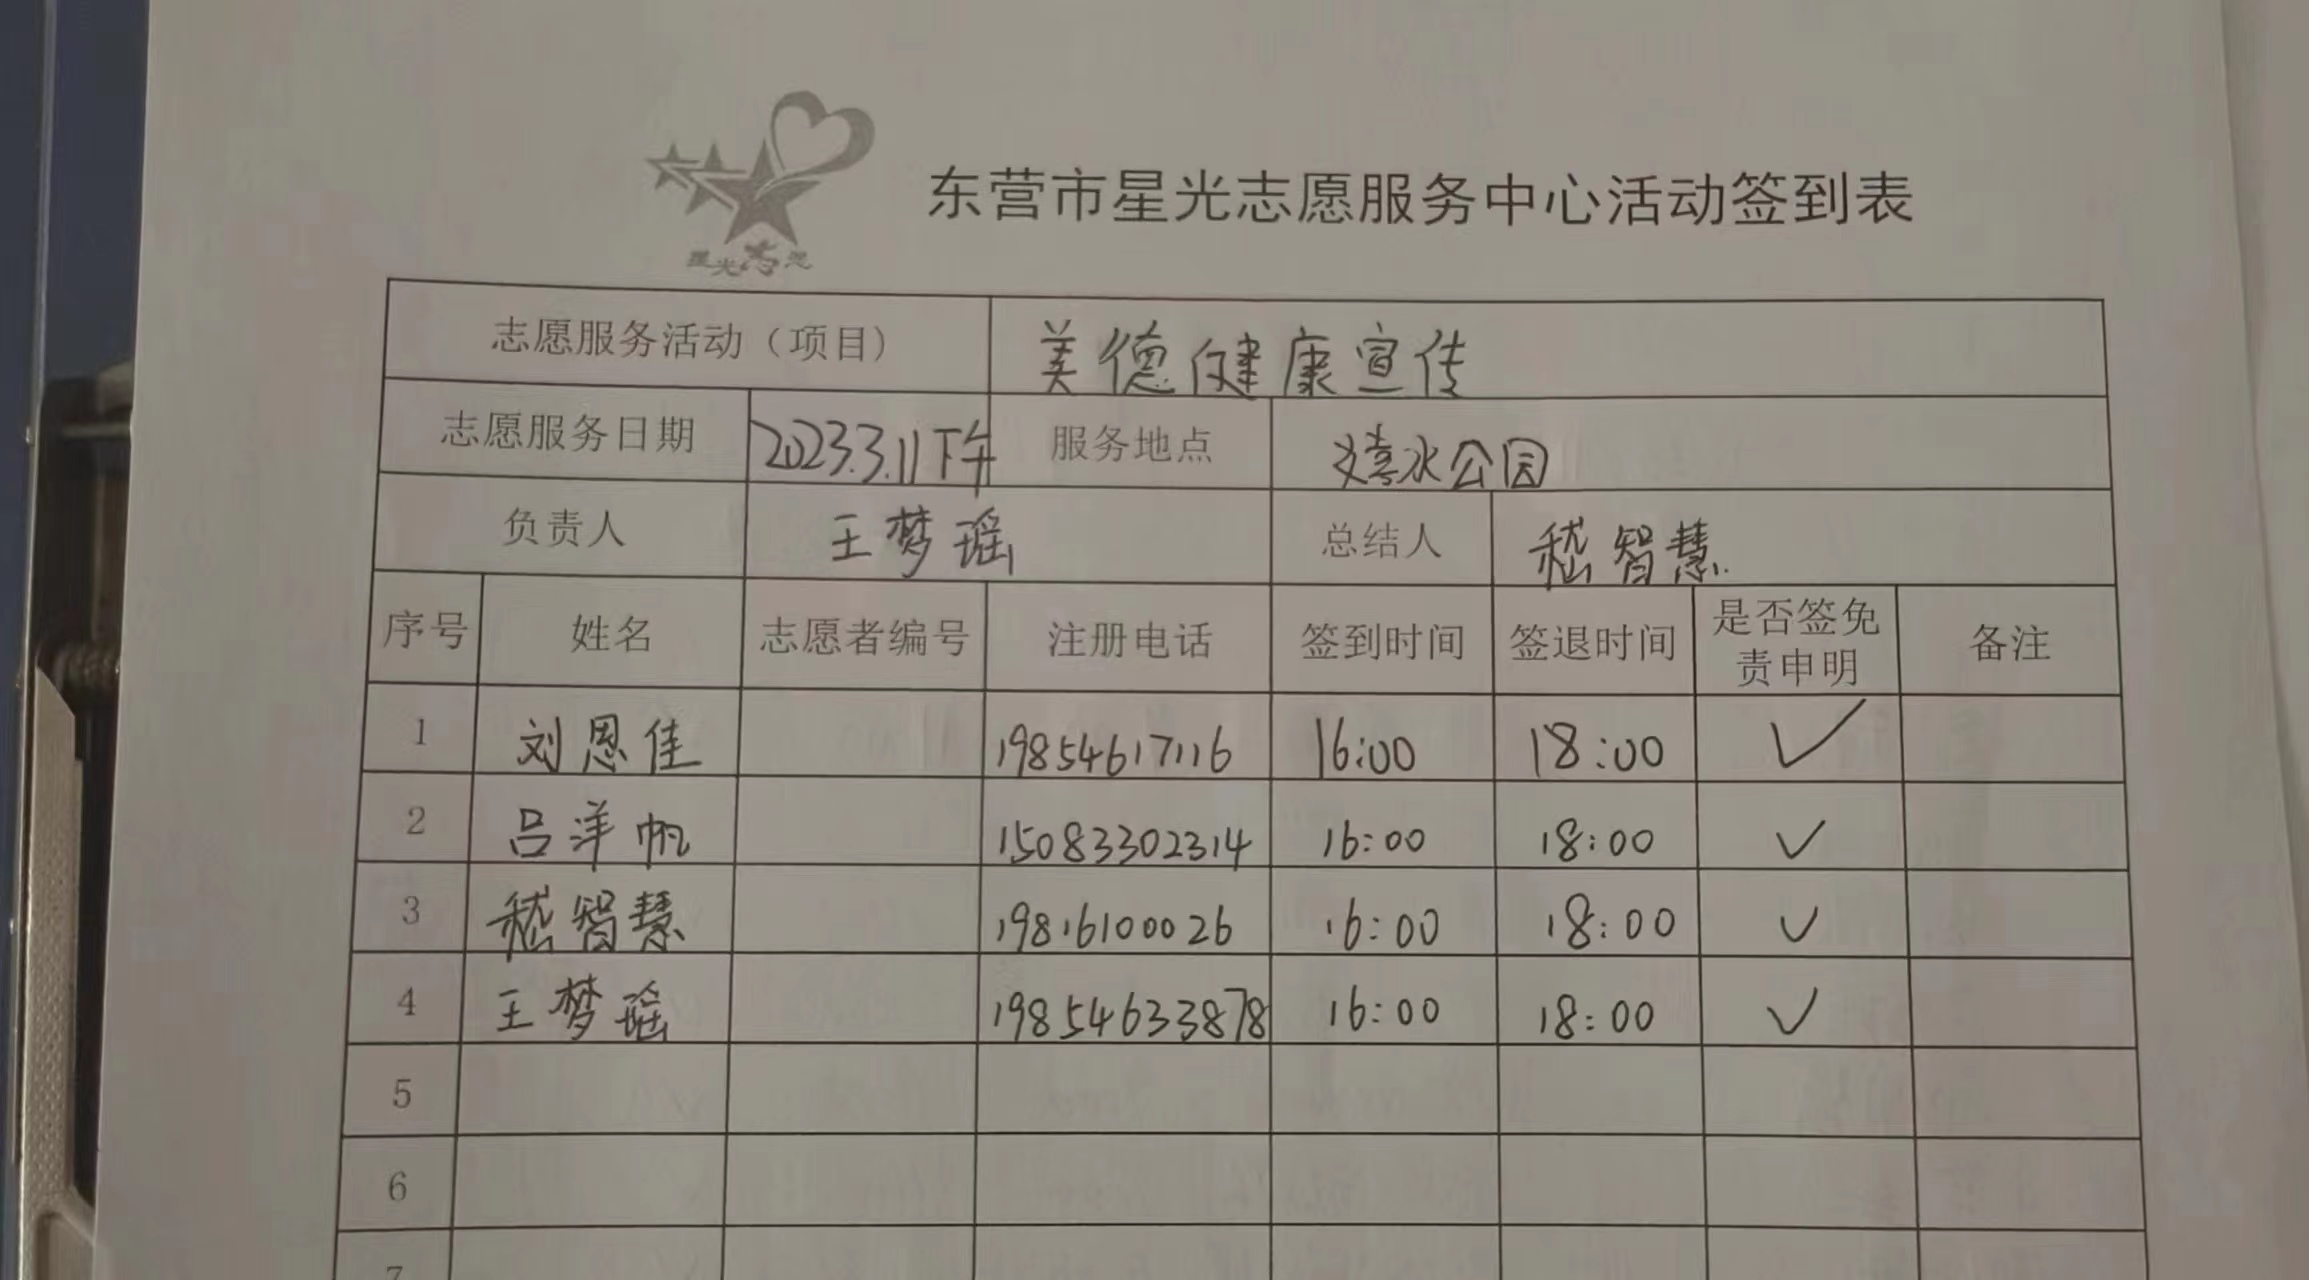 星光志愿
东营市星光志愿服务中心活动签到表
志愿服务活动（项目） 美德健康宣传
志愿服务日期 2023.3.11下午 服务地点 嬉水公园
负责人 王梦瑶 总结人 嵇智慧
序号 姓名 志愿者编号 注册电话 签到时间 签退时间 是否签免责申明 备注
1 刘恩佳 19854617116 16:00 18:00 ✓
2 吕洋帆 15083302314 16:00 18:00 ✓
3 嵇智慧 19816100026 16:00 18:00 ✓
4 王梦瑶 19854633878 16:00 18:00 ✓
5
6
7